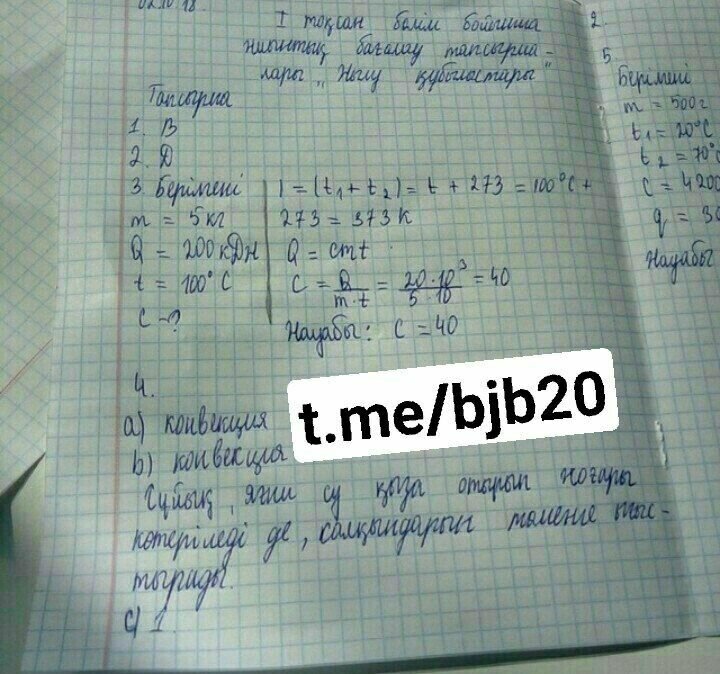 02.10 18.
I тоқсан бөлім бойынша
жиынтық бағалау тапсырма-
лары „Жылу құбылыстары"
Тапсырма
1. В
2. Д
3. Берілгені
m = 5кг
Q = 200кДж
t = 100°C
c -?
I = (t₁ + t₂) = t + 273 = 100°C +
273 = 373 k
Q = cmt
C = Q/m·t = 20·10³/5·10 = 40
Жауабы: C = 40
4.
a) конвекция
b) конвекция
Сұйық, яғни су қыза отырып жоғары
көтеріледі де, салқындарып төменге түс-
тырады.
c) 1.
t.me/bjb20
2.
5
Берілгені
m = 500г
t₁ = 20°C
t₂ = 70°
c = 4200
q = 3
Жауабы